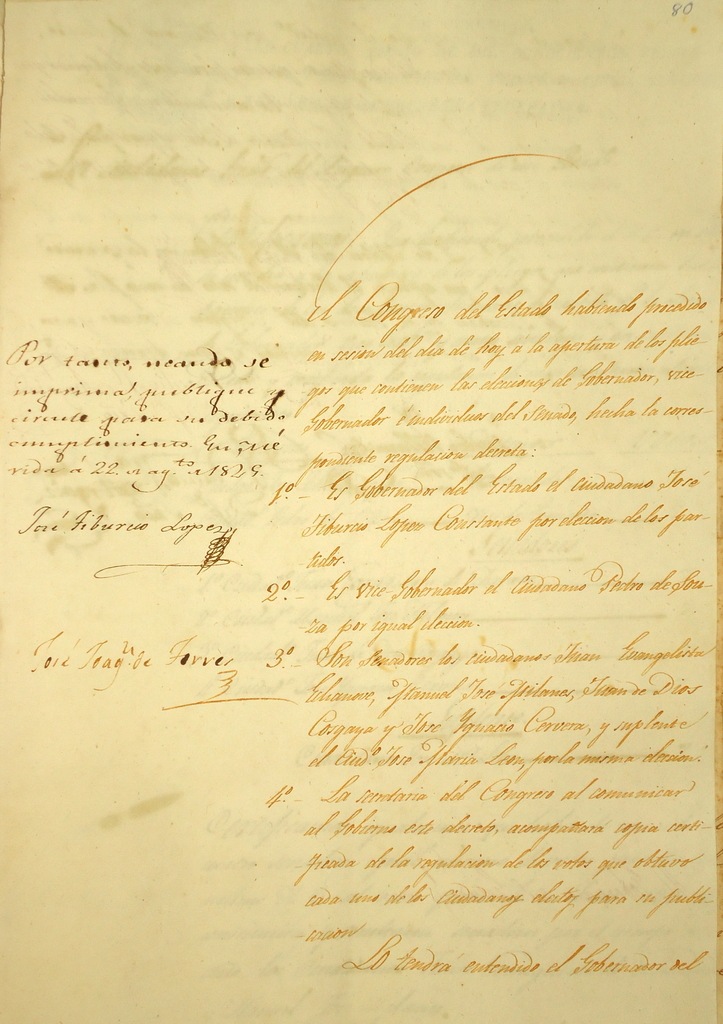 80
El Congreso del Estado habiendo procedido
en sesion del dia de hoy a la apertura de los plie-
gos que contienen las elecciones de Gobernador, vice-
Gobernador é individuos del Senado, hecha la corres-
pondiente regulacion decreta:
1º.- Es Gobernador del Estado el ciudadano José
Tiburcio Lopez Constante por eleccion de los par-
tidos.
2º.- Es Vice-Gobernador el Ciudadano Pedro de Sou-
za por igual eleccion.
3º.- Son Senadores los ciudadanos Juan Evangelista
Echanove, Manuel José Milanes, Juan de Dios
Cosgaya y José Ygnacio Cervera, y suplente
el Ciudº. José Maria Leon, por la misma eleccion.
4º.- La secretaria del Congreso al comunicar
al Gobierno este decreto, acompañará copia certi-
ficada de la regulacion de los votos que obtuvo
cada uno de los Ciudadanos electos para su publi-
cacion
Lo tendrá entendido el Gobernador del
Por tanto, mando se
imprima, publique y
circule para su debido
cumplimiento. En Mé
rida á 22. de ag.to de 1825.
José Tiburcio Lopez
José Joaqn. de Torres